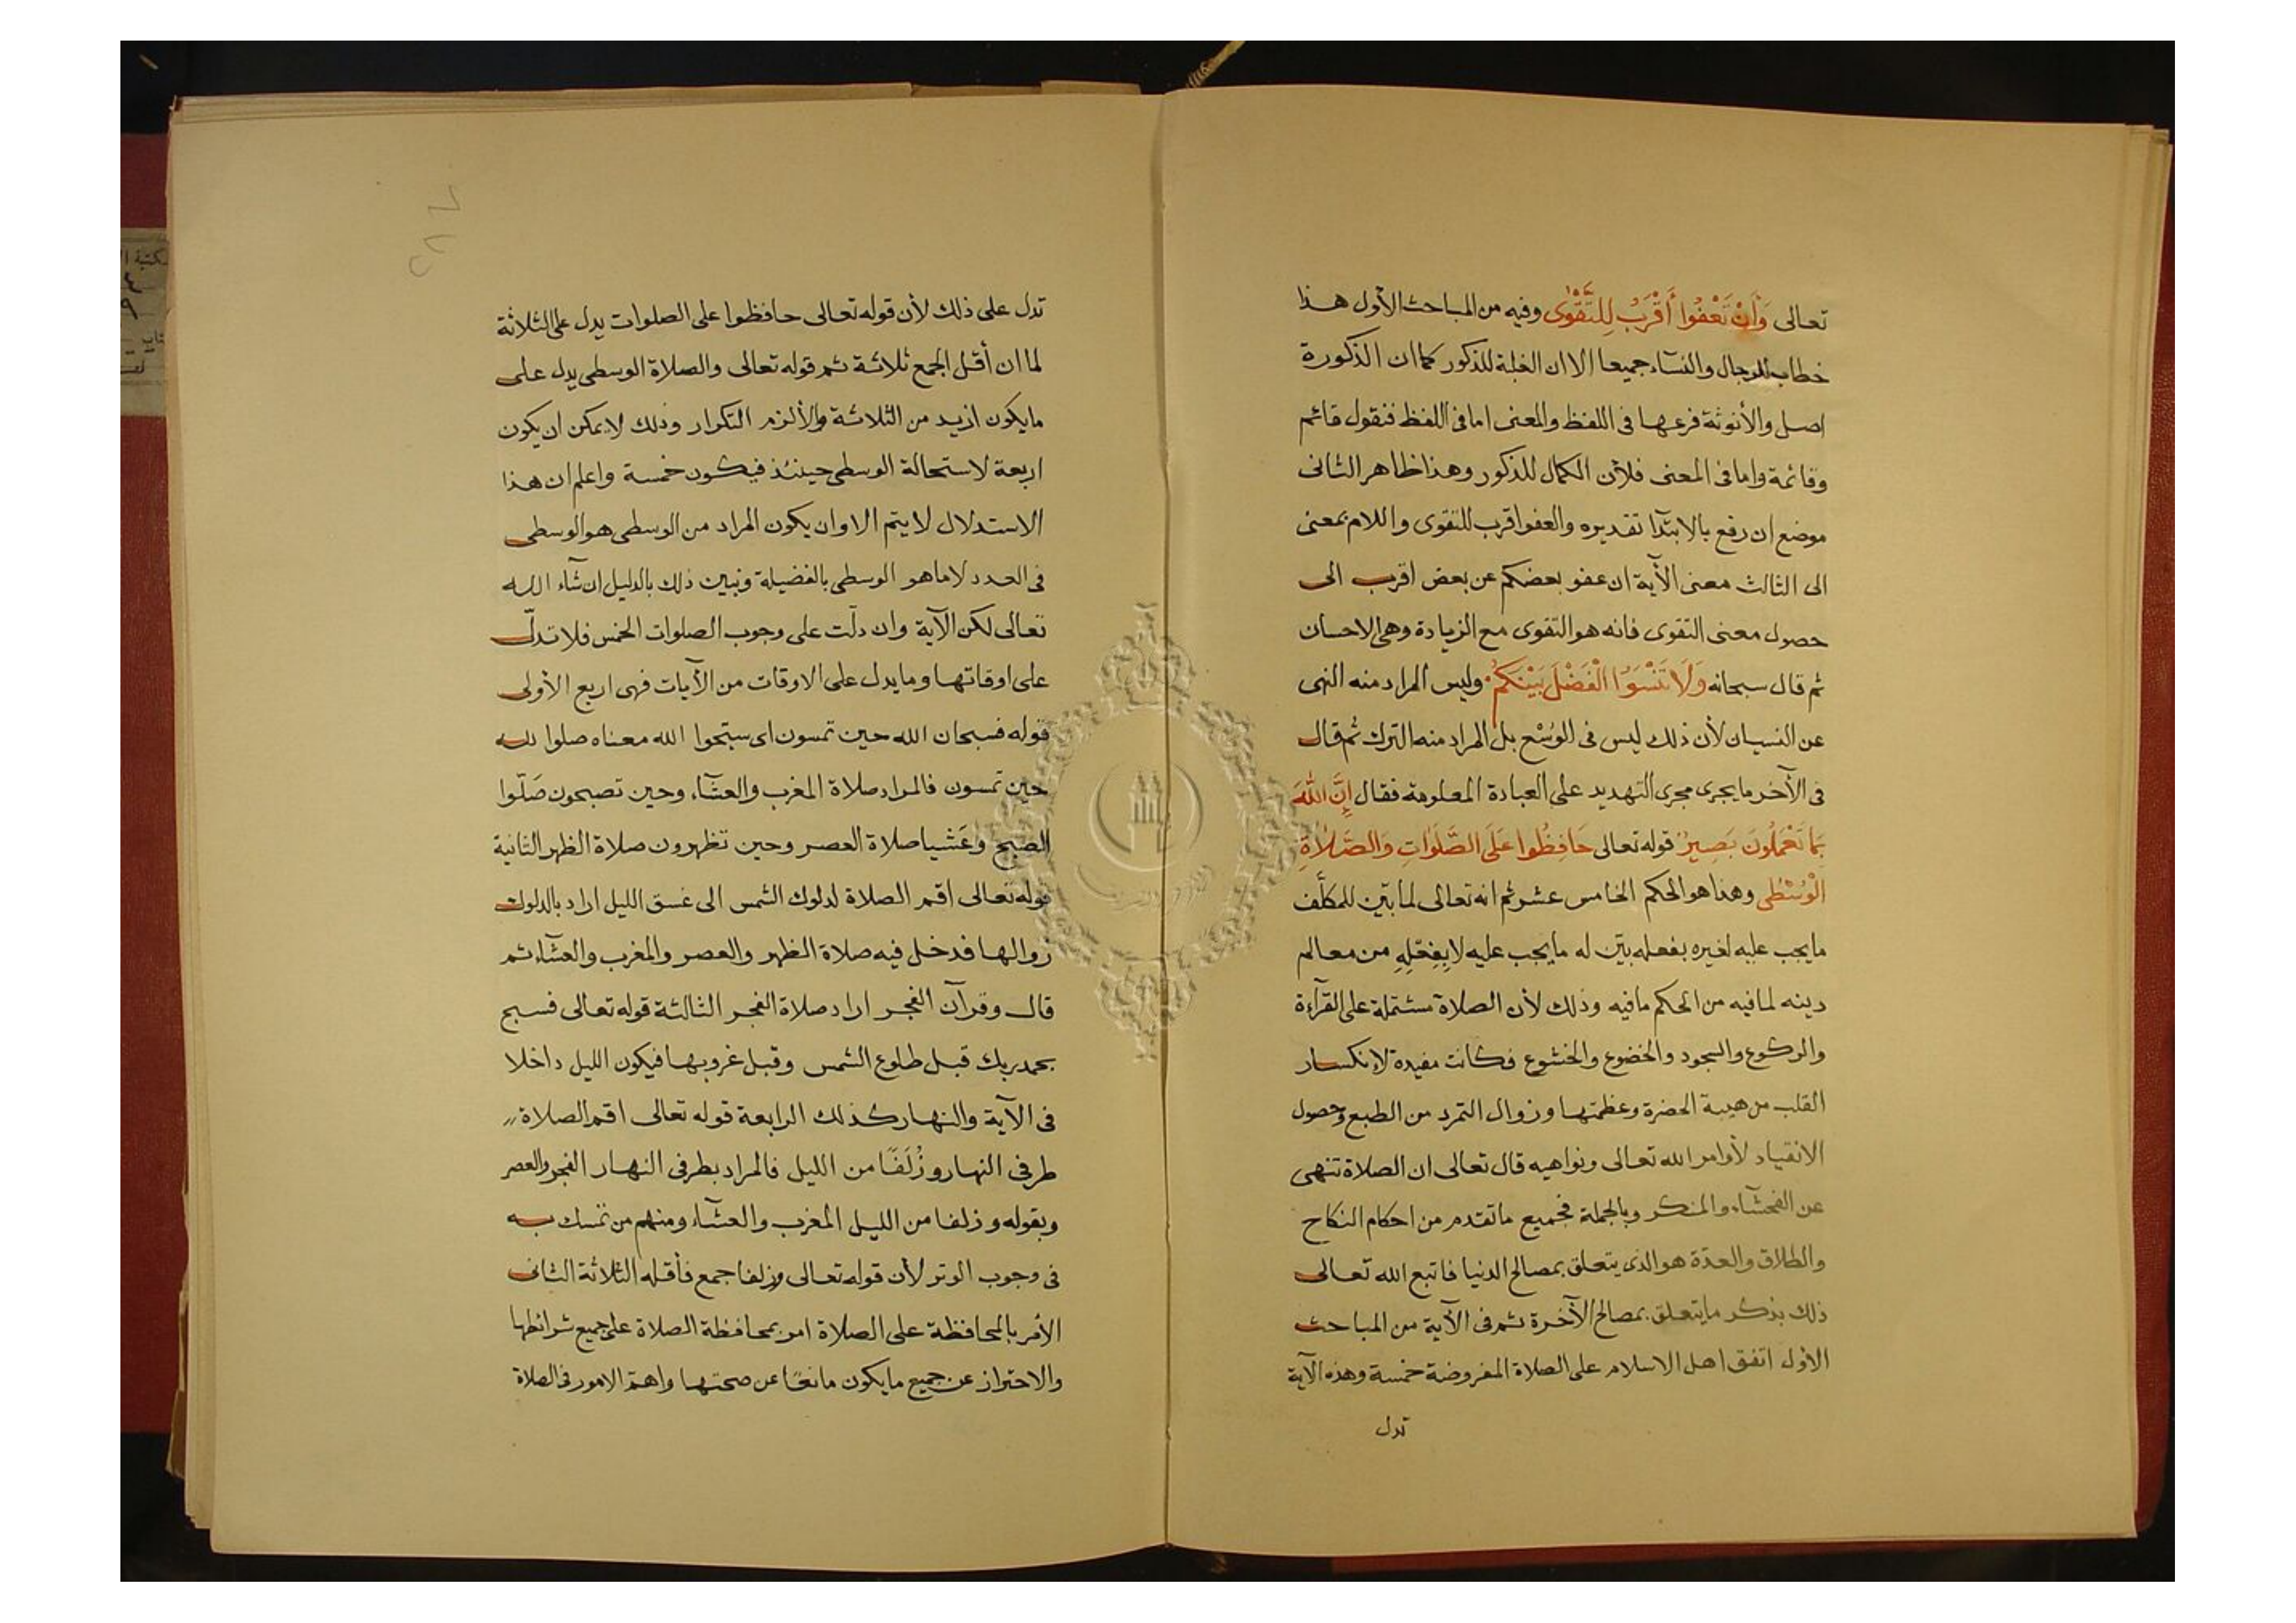 تعالى وَأَنْ تَعْفُوا أَقْرَبُ لِلتَّقْوٰى وفيه من المباحث الأول هذا
خطاب للرجال والنسآء جميعا الا ان الغلبة للذكور كما ان الذكورة
اصل والأنوثة فرعها فى اللفظ والمعنى اما فى اللفظ فنقول قائم
وقائمة واما فى المعنى فلأن الكمال للذكور وهذا ظاهر الثانى
موضع ان رفع بالابتدآ تقديره والعفو اقرب للتقوى واللام بمعنى
الى الثالث معنى الآية ان عفو بعضكم عن بعض اقرب الى
حصول معنى التقوى فانه هو التقوى مع الزيادة وهى الاحسان
ثم قال سبحانه وَلَا تَنْسَوُا الْفَضْلَ بَيْنَكُمْ وليس المراد منه النهى
عن النسيان لأن ذلك ليس فى الوُسْع بل المراد منه الترك ثم قال
فى الآخر ما يجرى مجرى التهديد على العبادة المعلومة فقال إِنَّ اللهَ
بِمَا تَعْمَلُونَ بَصِيرٌ قوله تعالى حَافِظُوا عَلَى الصَّلَوَاتِ وَالصَّلَاةِ
الْوُسْطٰى وهذا هو الحكم الخامس عشر ثم انه تعالى لما بيّن للمكلَّف
ما يجب عليه لغيره بفعله بيّن له ما يجب عليه لا بِفِعْلِهِ من معالم
دينه لما فيه من الحكم ما فيه وذلك لأن الصلاة مشتملة على القرآءة
والركوع والسجود والخضوع والخشوع فكانت مفيدة لانكسار
القلب من هيبة الحضرة وعظمتها وزوال التمرد من الطبع وحصول
الانقياد لأوامر الله تعالى ونواهيه قال تعالى ان الصلاة تنهى
عن الفحشآء والمنكر وبالجملة فجميع ما تقدم من احكام النكاح
والطلاق والعدّة هو الذى يتعلق بمصالح الدنيا فاتبع الله تعالى
ذلك بذكر ما يتعلق بمصالح الآخرة ثم فى الآية من المباحث
الأول اتفق اهل الاسلام على الصلاة المفروضة خمسة وهذه الآية
تدل
تدل على ذلك لأن قوله تعالى حافظوا على الصلوات يدل على الثلاثة
لما ان أقل الجمع ثلاثة ثم قوله تعالى والصلاة الوسطى يدل على
ما يكون ازيد من الثلاثة والألزم التكرار وذلك لا يمكن ان يكون
اربعة لاستحالة الوسطى حينئذ فيكون خمسة واعلم ان هذا
الاستدلال لا يتم الا وان يكون المراد من الوسطى هو الوسطى
فى العدد لا ما هو الوسطى بالفضيلة ونبين ذلك بالدليل ان شآء الله
تعالى لكن الآية وان دلّت على وجوب الصلوات الخمس فلا تدلّ
على اوقاتها وما يدل على الاوقات من الآيات فهى اربع الأولى
قوله فسبحان الله حين تمسون اى سبّحوا الله معناه صلوا لله
حين تمسون فالمراد صلاة المغرب والعشآء وحين تصبحون صَلّوا
الصبح وَعَشيا صلاة العصر وحين تظهرون صلاة الظهر الثانية
قوله تعالى اقم الصلاة لدلوك الشمس الى غسق الليل اراد بالدلوك
زوالها فدخل فيه صلاة الظهر والعصر والمغرب والعشآء ثم
قال وقرآن الفجر اراد صلاة الفجر الثالثة قوله تعالى فسبح
بحمد ربك قبل طلوع الشمس وقبل غروبها فيكون الليل داخلا
فى الآية والنهار كذلك الرابعة قوله تعالى اقم الصلاة
طرفى النهار وزُلَفًا من الليل فالمراد بطرفى النهار الفجر والعصر
وبقوله وزلفا من الليل المغرب والعشآء ومنهم من تمسك به
فى وجوب الوتر لأن قوله تعالى وزلفا جمع فأقله الثلاثة الثانى
الأمر بالمحافظة على الصلاة امر بمحافظة الصلاة على جميع شرائطها
والاحتراز عن جميع ما يكون مانعًا عن صحتها واهم الامور فى الصلاة